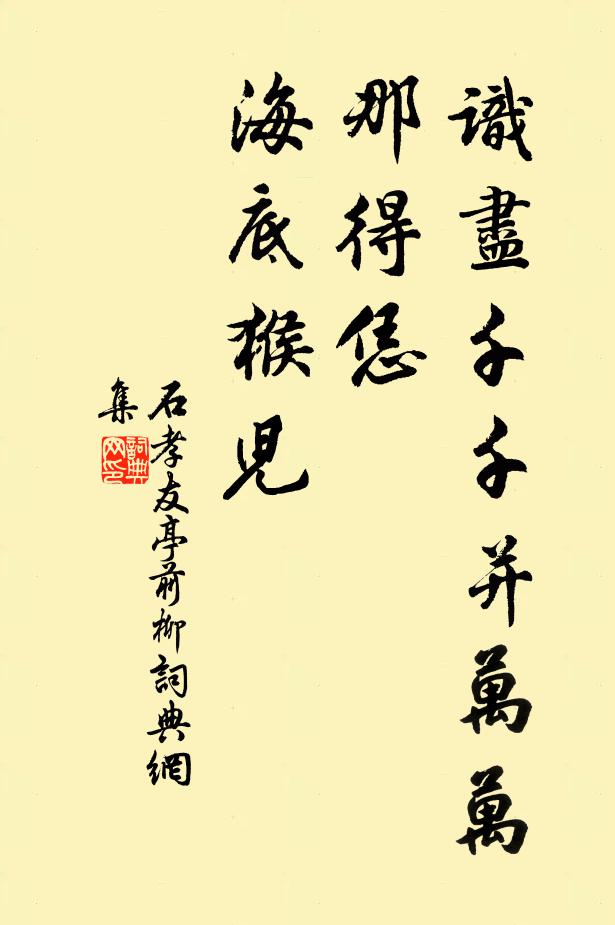 識盡千千并萬萬
那得恁
海底猴兒
石孝友亭前柳詞典網
集
詞典
网印